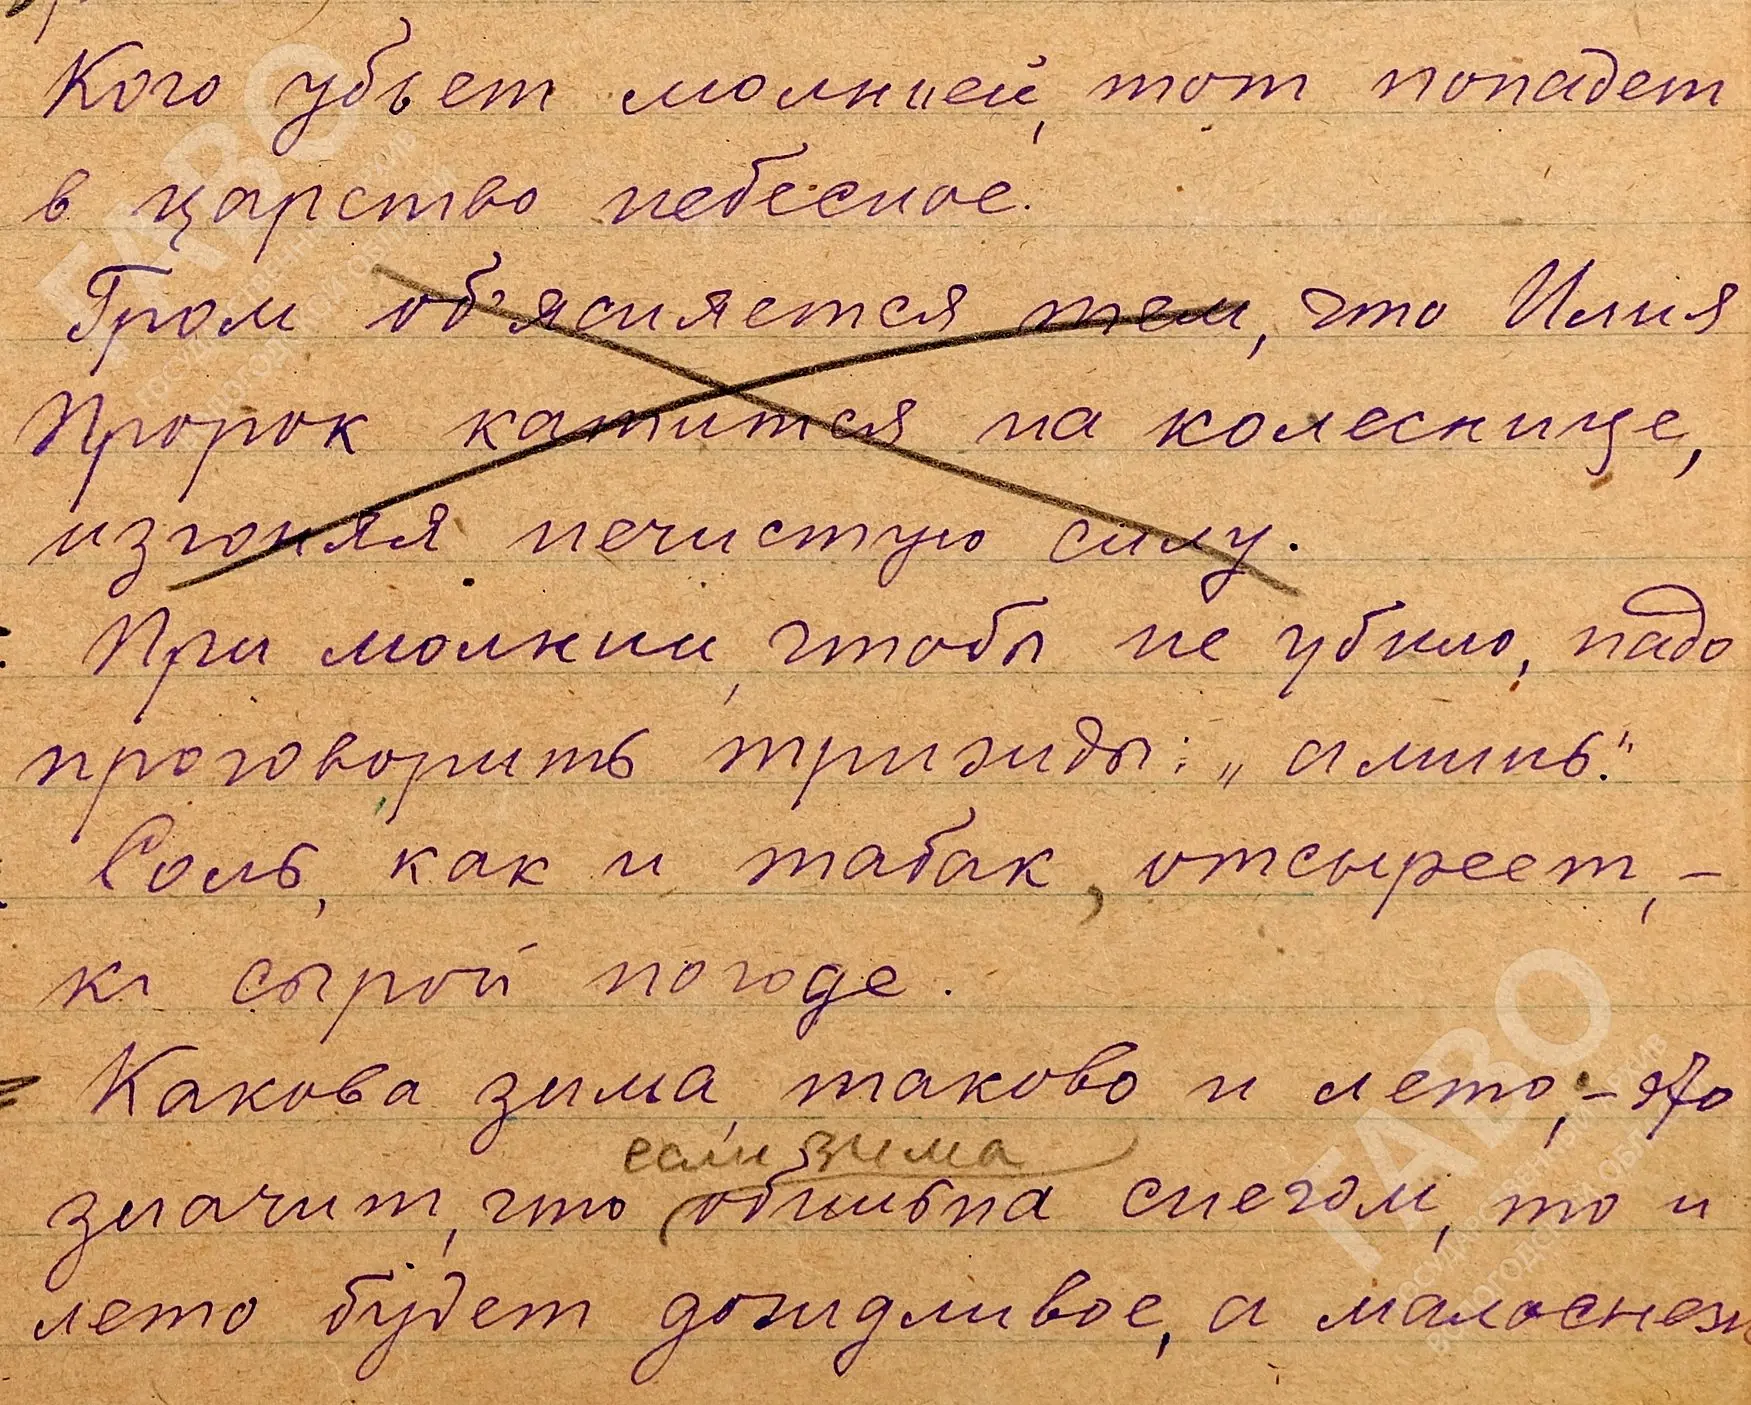 Кого убьет молнией, тот попадет
в царство небесное.
Гром объясняется тем, что Илия
Пророк катится на колеснице,
изгоняя нечистую силу.
При молнии, чтобы не убило, надо
проговорить трижды: „аминь“.
Соль, как и табак, отсыреет, -
к сырой погоде.
Какова зима, таково и лето, - это
если зима
значит, что обильна снегом, то и
лето будет дождливое, а малоснеж
ГАВО
ГАВО